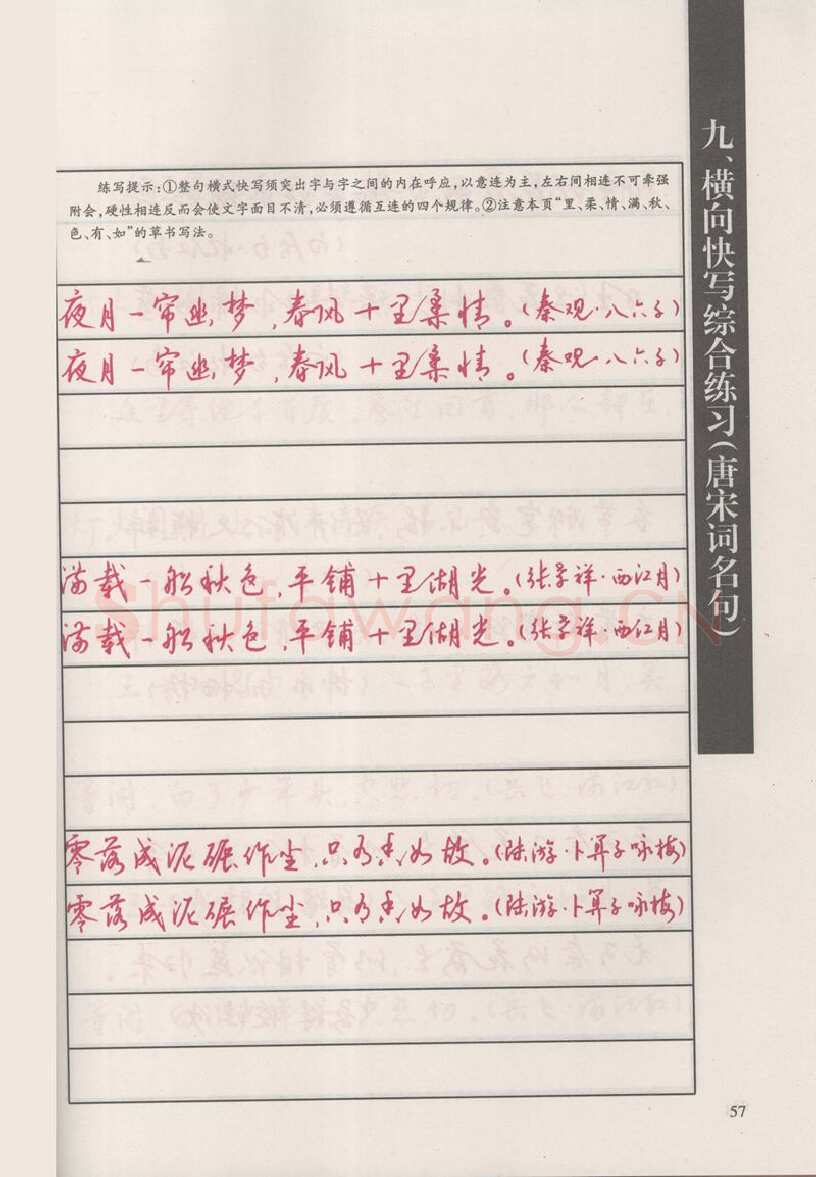 九、横向快写综合练习（唐宋词名句）
练写提示：①整句横式快写须突出字与字之间的内在呼应，以意连为主，左右间相连不可牵强
附会，硬性相连反而会使文字面目不清，必须遵循互连的四个规律。②注意本页“里、柔、情、满、秋、
色、有、如”的草书写法。
夜月一帘幽梦，春风十里柔情。（秦观·八六子）
夜月一帘幽梦，春风十里柔情。（秦观·八六子）
满载一船秋色，平铺十里湖光。（张孝祥·西江月）
满载一船秋色，平铺十里湖光。（张孝祥·西江月）
零落成泥碾作尘，只有香如故。（陆游·卜算子咏梅）
零落成泥碾作尘，只有香如故。（陆游·卜算子咏梅）
shufawang.CN
57